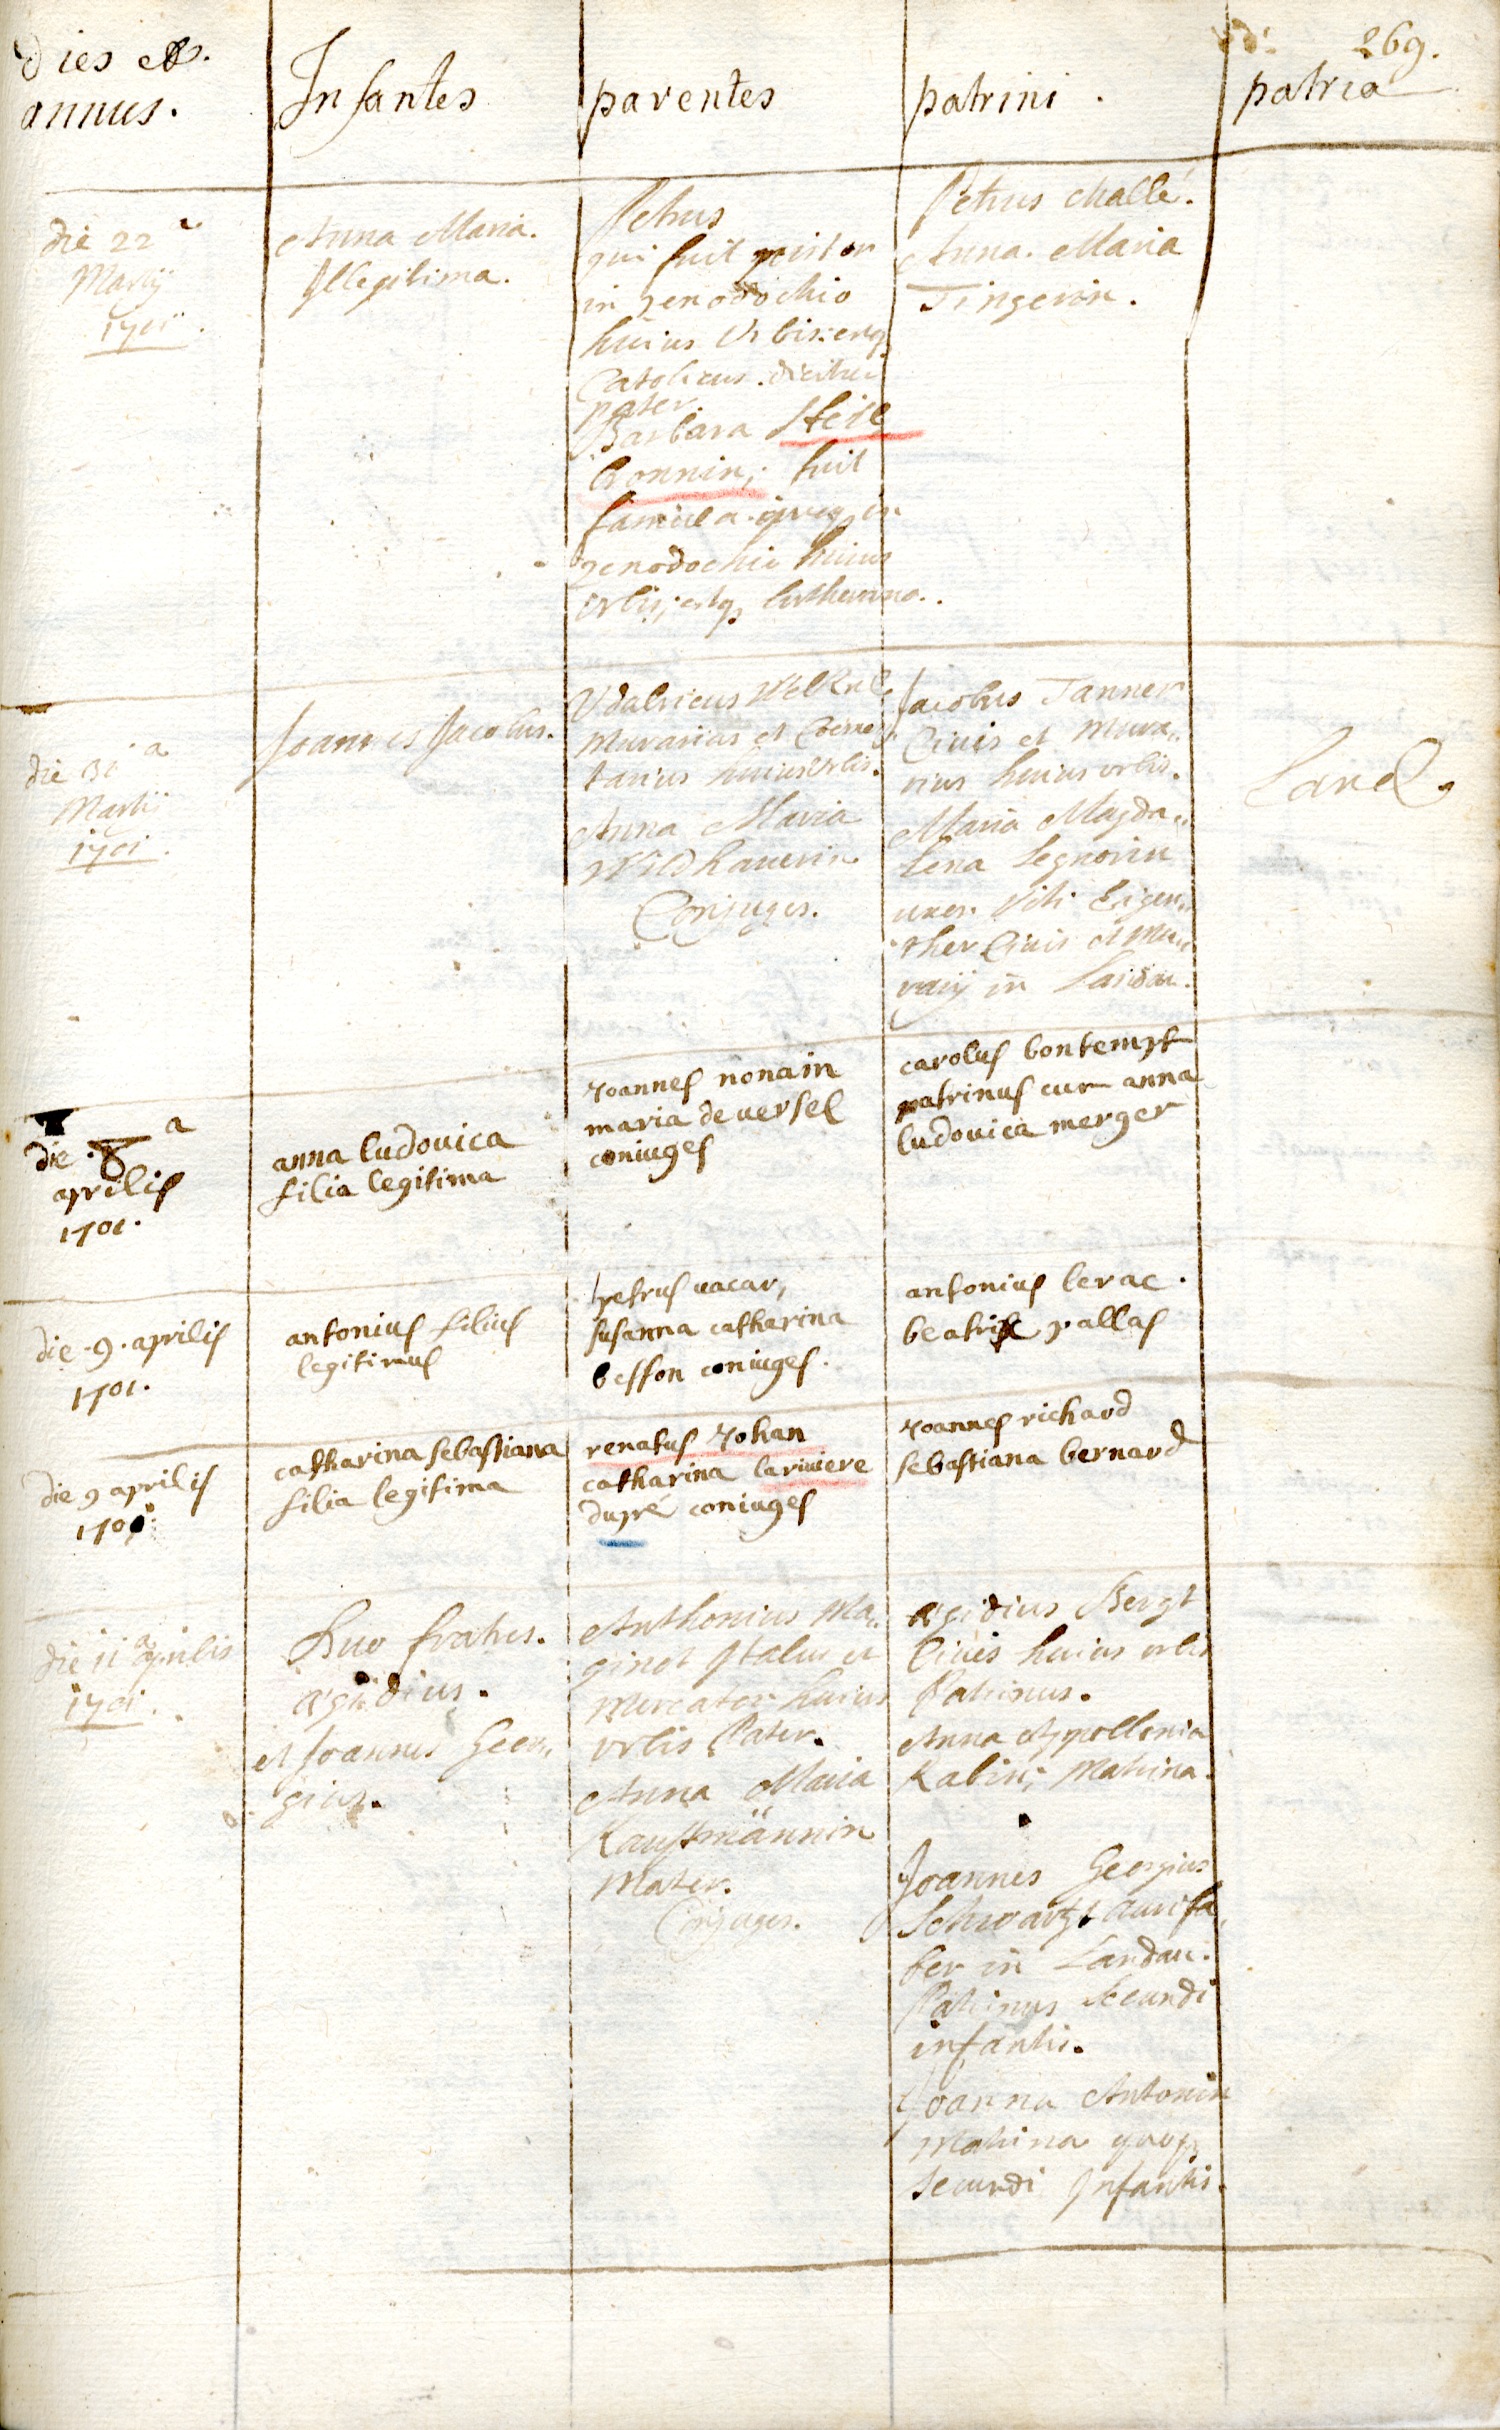 269.
dies et
annus.
Infantes
parentes
patrini.
patria
die 22ª
Martij
1701.
Anna Maria.
Illegitima.
Petrus
qui fuit pistor
in xenodochio
huius Urbis: erq
Catolicus. dicitur
pater.
Barbara Heil
bronnin; fuit
famula. quoq in
xenodochio huius
Urbis; estq Lutherana.
Petrus Mallé.
Anna. Maria
Tingerin.
die 30ª
Martij
1701.
Joannes Jacobus.
Udalricus
Murarius et Coeme,
tarius huius Urbis.
Anna Maria
Wildhauerin
Conjuges.
Jacobus Tanner
Civis et Mura,,
rius huius urbis.
Maria Magda,,
lena Legnorin
uxor Viti Eigen,,
ther Civis et Mu,,
rarij in Landau.
Land.
die 8 a
aprilis
1701.
anna ludovica
filia legitima
Joannes nonain
maria de versel
coniuges
carolus bontempt
patrinus cum anna
ludovica merger
die 9. aprilis
1701.
antonius filius
legitimus
petrus vacar,
susanna catharina
besson coniuges.
antonius lerac.
beatrix pallas
die 9 aprilis
1701.
catharina sebastiana
filia legitima
renatus Johan
catharina lariviere
dupré coniuges
Joannes richard
sebastiana bernard
die 11ª aprilis
1701.
Duo fratres.
Ægidius.
et Joannes Geor,,
gius.
Anthonius Ma,,
ginot Italus et
Mercator huius
urbis Pater.
Anna Maria
Kauffmännin
Mater.
Conjuges.
Ægidius Bergt
Civis huius urbis
Patrinus.
Anna Appollonia
Kalin; Matrina.
Joannes Georgius
Schwartz Aurifa,
ber in Landau.
Patrinus Secundi
infantis.
Joanna Antonin
Matrina quoq
Secundi Infantis.